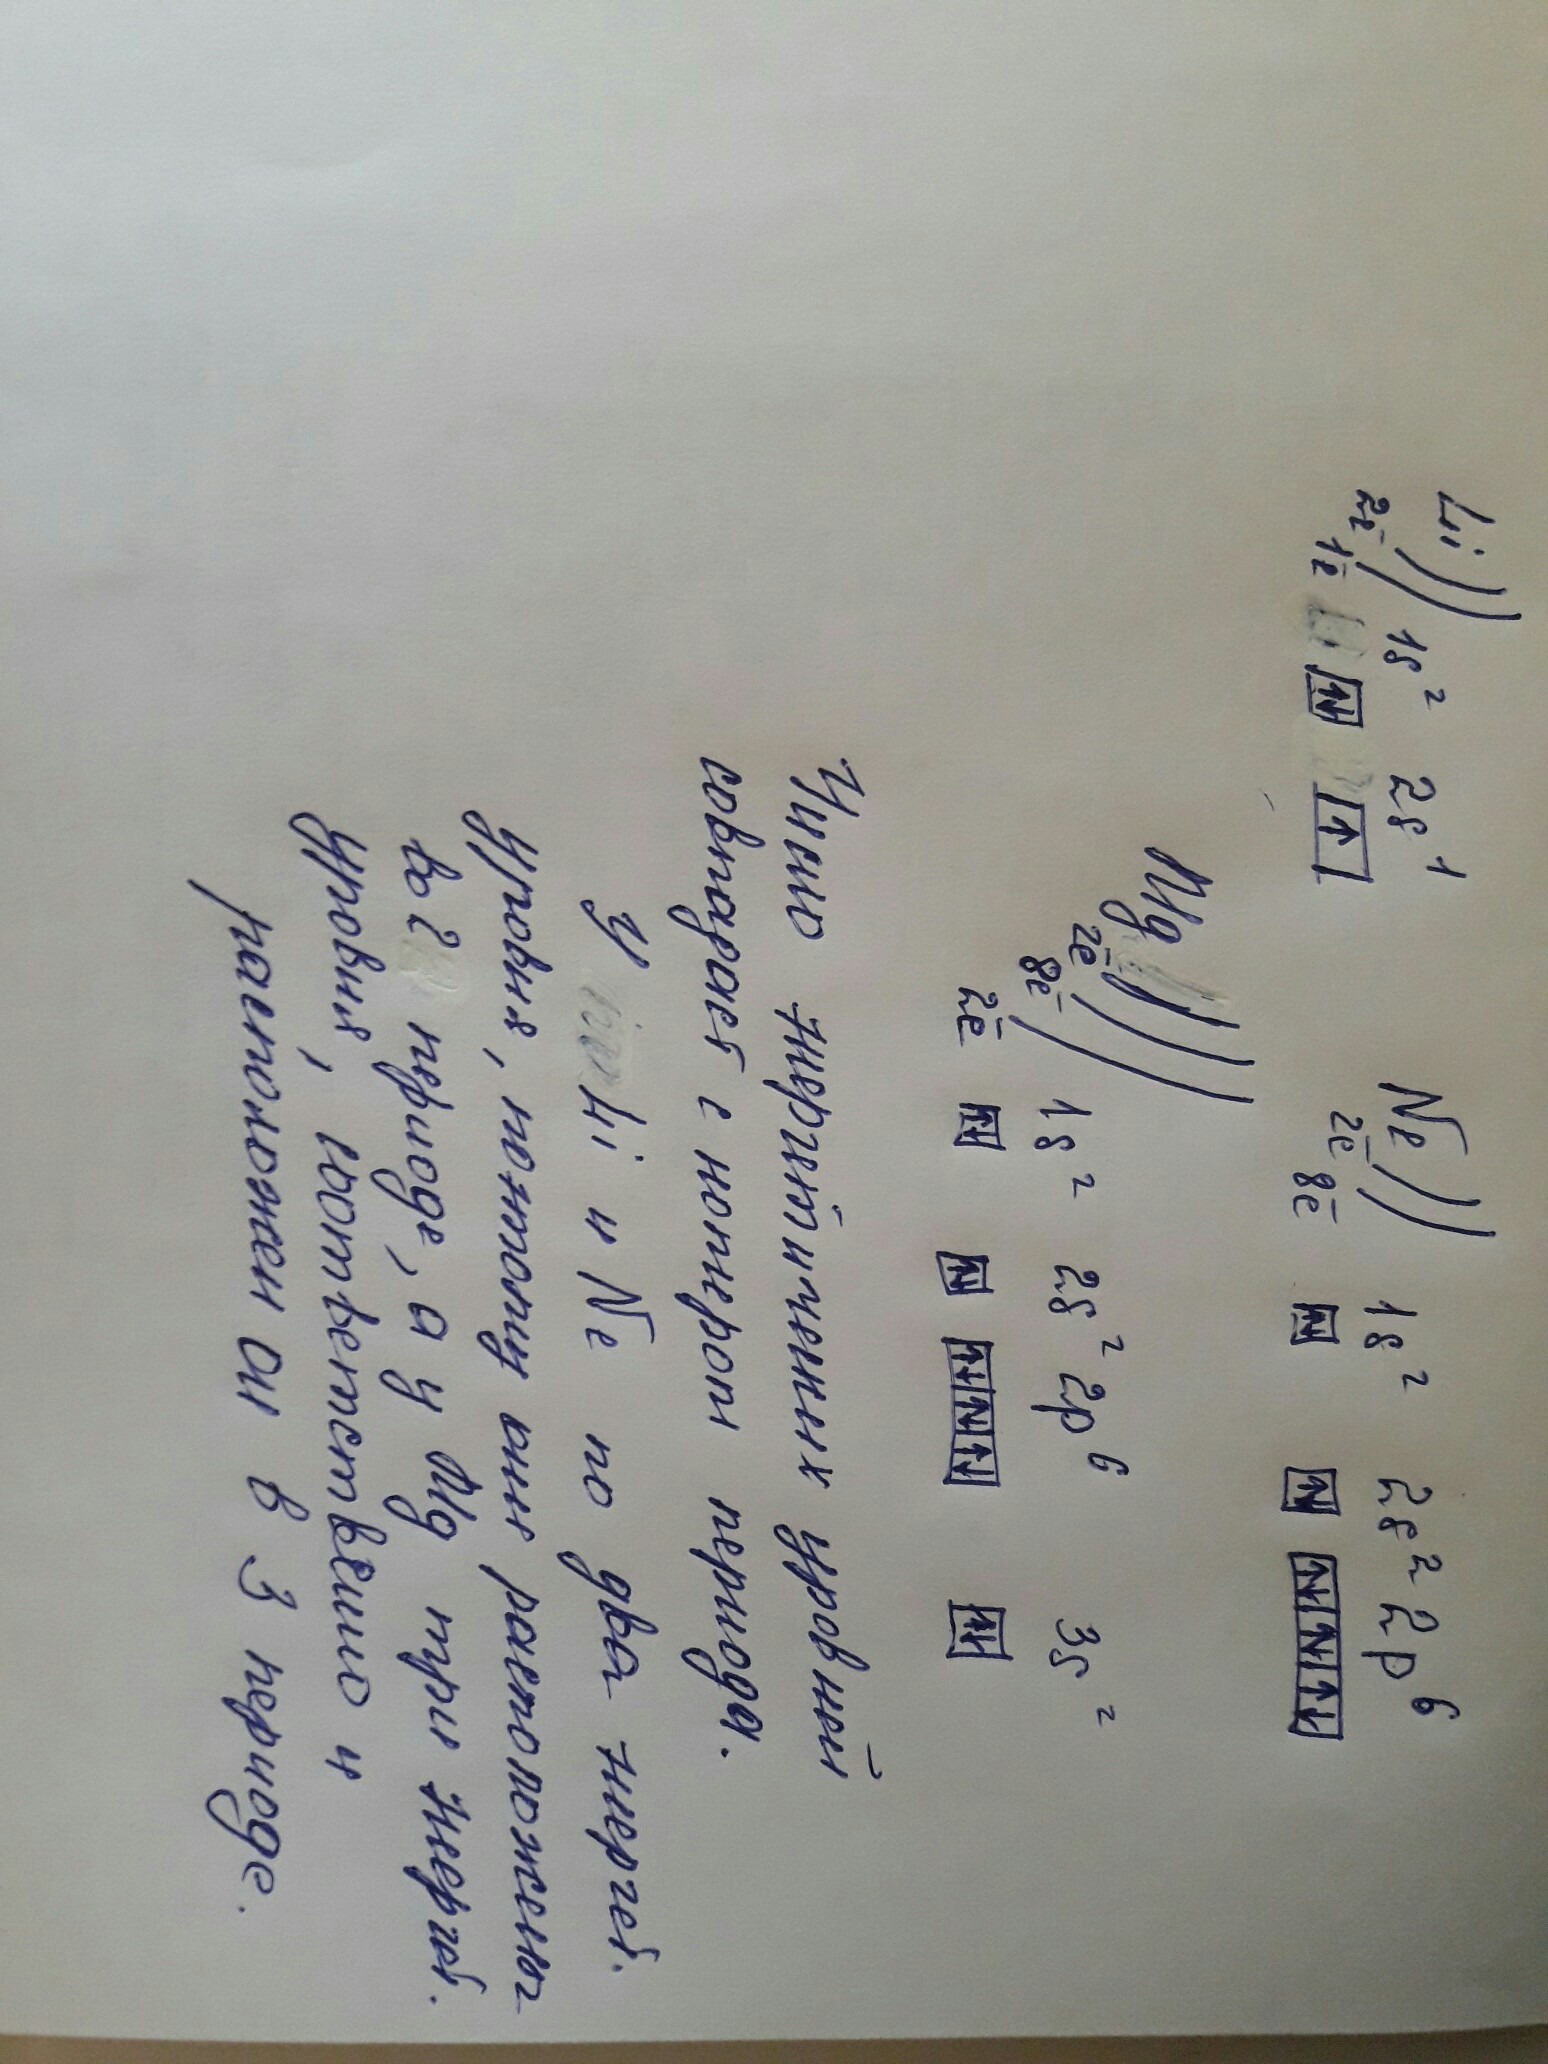 Li 1s² 2s¹ Ne 1s² 2s² 2p⁶
2e̅ 1e̅ ↑↓ ↑ 2e̅ 8e̅ ↑↓ ↑↓ ↑↓ ↑↓ ↑↓
Mg 1s² 2s² 2p⁶ 3s²
2e̅ 8e̅ 2e̅ ↑↓ ↑↓ ↑↓ ↑↓ ↑↓ ↑↓
Число энергетических уровней
совпадает с номером периода.
У Li и Ne по два энергет.
уровня, поэтому они расположены
во 2 периоде, а у Mg три энергет.
уровня, соответственно и
расположен он в 3 периоде.